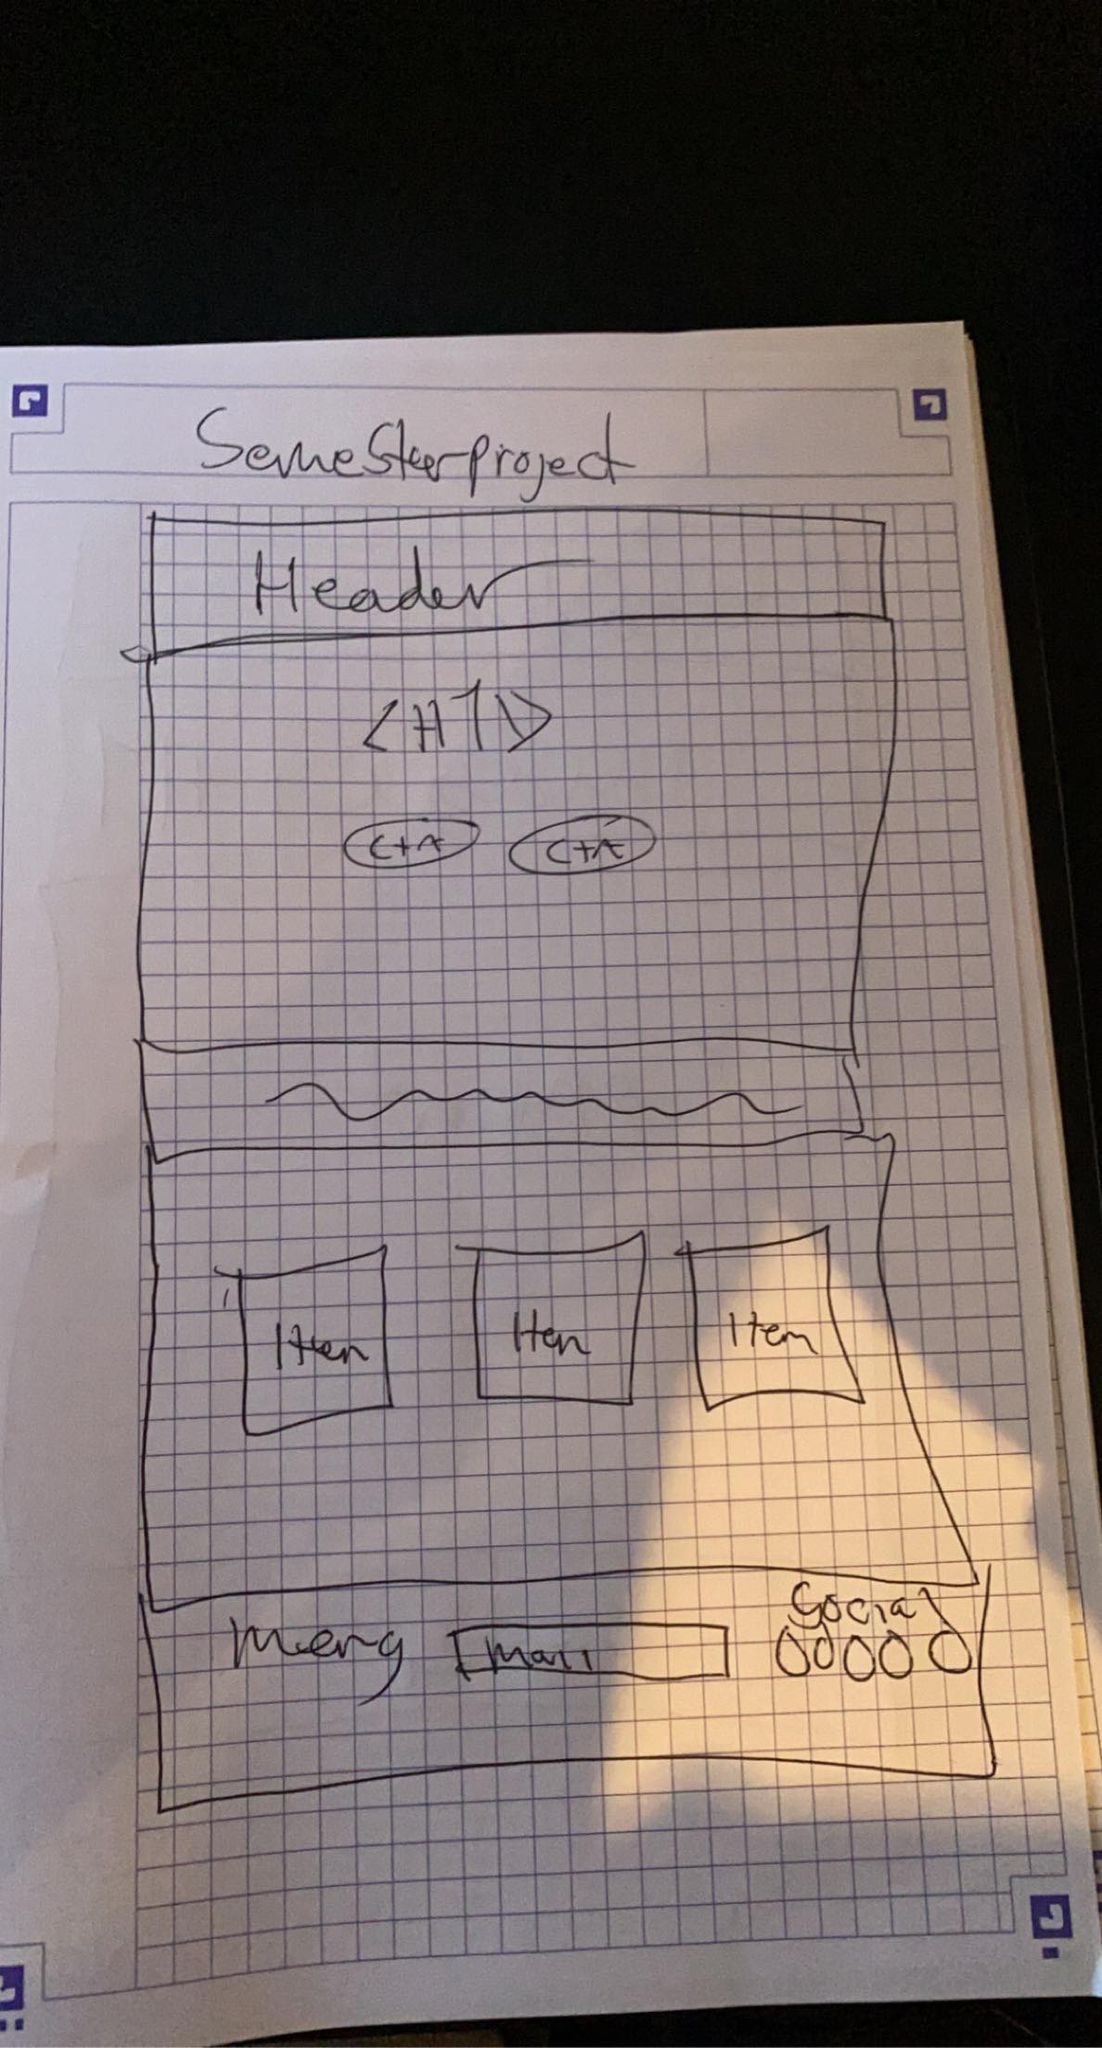 Semesterproject
Header
<H1>
CTA CTA
Item Item Item
Social
Email